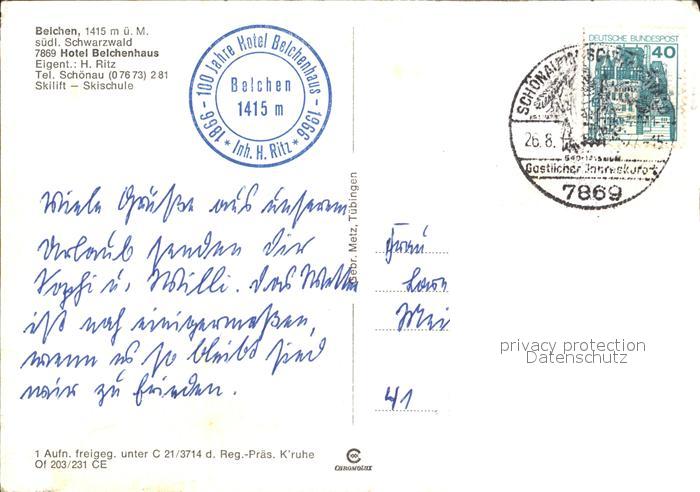 Belchen, 1415 m ü. M.
südl. Schwarzwald
7869 Hotel Belchenhaus
Eigent.: H. Ritz
Tel. Schönau (0 76 73) 2 81
Skilift – Skischule
1866 - 100 Jahre Hotel Belchenhaus - 1966
Belchen
1415 m
* Inh. H. Ritz *
DEUTSCHE BUNDESPOST
40
26.8.
Gastlicher
7869
Viele Grüße aus unserem
Urlaub senden dir
Sophi u. Willi. Das Wetter
ist noch einigermaßen,
wenn es so bleibt sind
wir zu frieden.
Gebr. Metz, Tübingen
Frau
Mei
41
privacy protection
Datenschutz
1 Aufn. freigeg. unter C 21/3714 d. Reg.-Präs. K'ruhe
Of 203/231 CE
CHROMOLUX